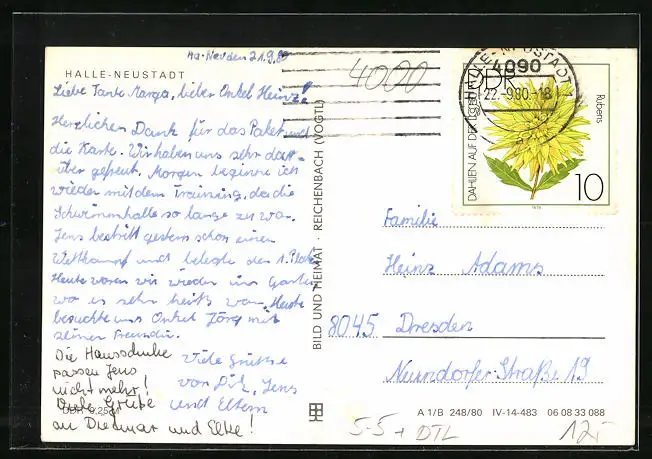 Ha-Neu den 21.9.80
HALLE-NEUSTADT
Liebe Tante Marga, lieber Onkel Heinz!
Herzlichen Dank für das Paket und
die Karte. Wir haben uns sehr dar-
über gefreut. Morgen beginne ich
wieder mit dem Training, da die
Schwimmhalle so lange zu war.
Jens bestritt gestern schon einen
Wettkampf und belegte den 1. Platz
Heute waren wir wieder im Garten
wo es sehr heiß war. Heute
besuchte uns Onkel Jörg mit
seiner Freundin.
Viele Grüße
von Dirk, Jens
und Eltern
Die Hausschuhe
passen Jens
nicht mehr!
Viele Grüße
an Dietmar und Elke!
DDR 0,25 M
BILD UND HEIMAT · REICHENBACH (VOGTL)
4000
HALLE-NEUSTADT
4090
22.-9.80-18
DDR
DAHLIEN AUF DER
Rubens
10
Familie
Heinz Adams
8045 Dresden
Neundorfer Straße 19
A 1/B 248/80 IV-14-483 06 08 33 088
5-5 + DTL
12,-